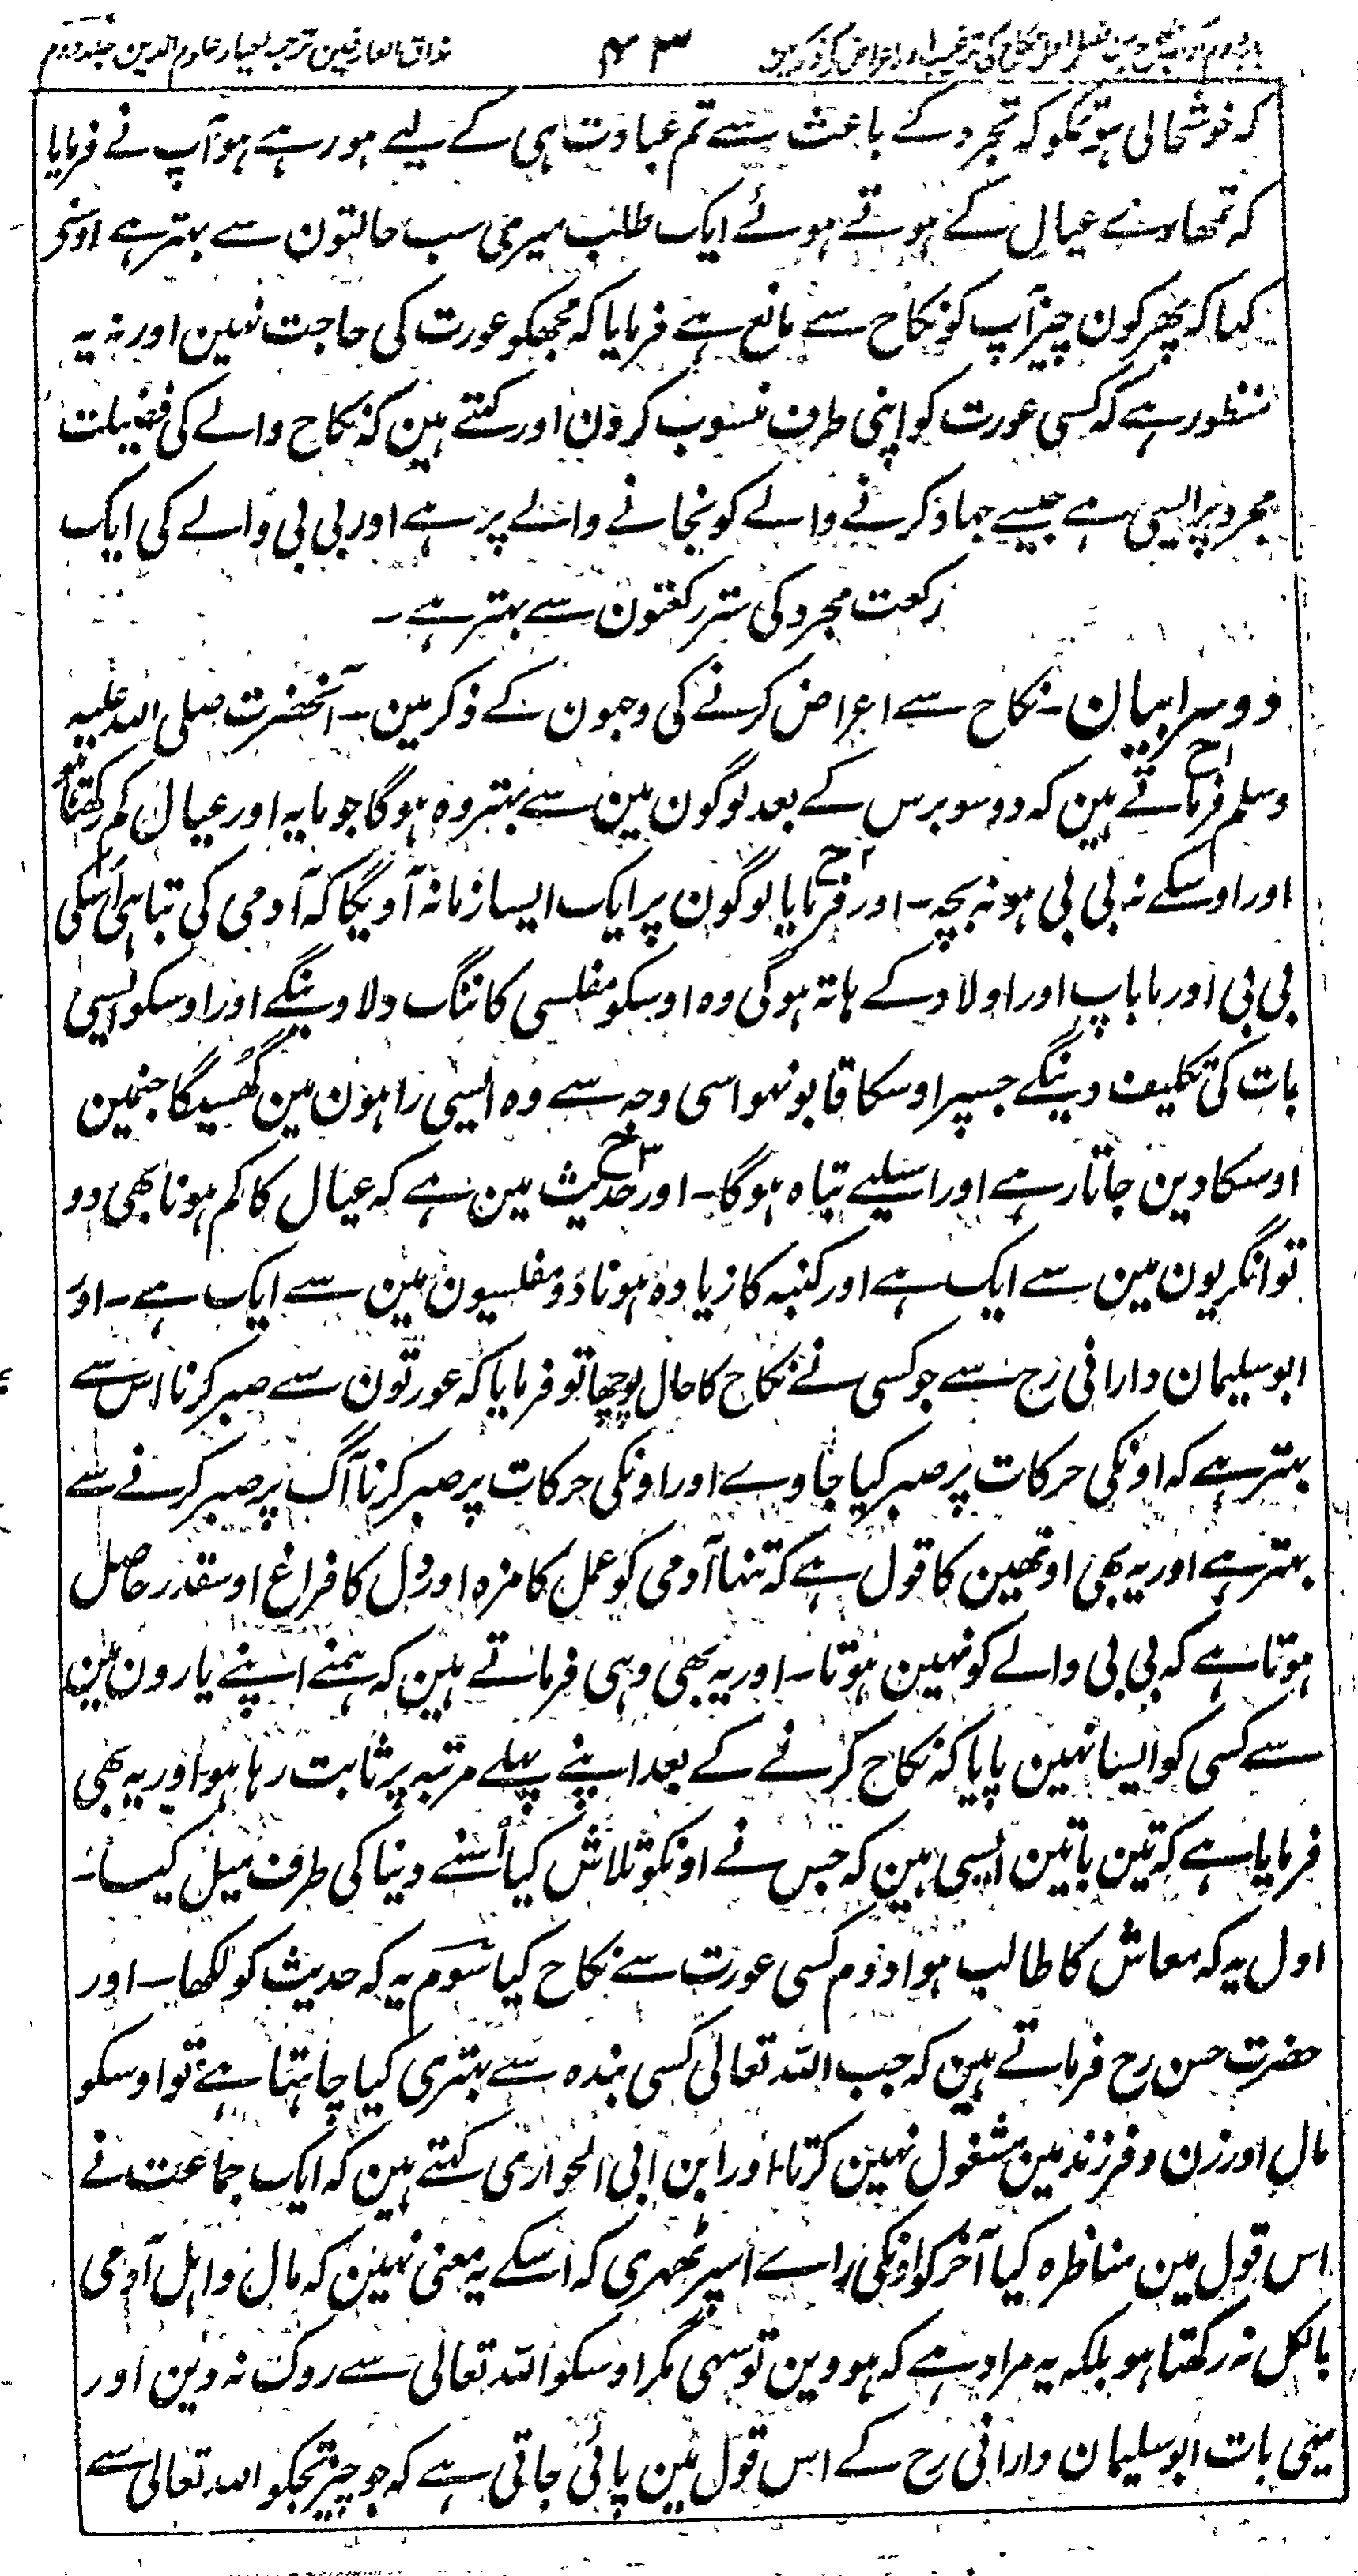 مذاق العارفین ترجمہ احیاء علوم الدین جلد دوم
۴۳
کہ خوشحالی ہو تمکو کہ تجرد کے باعث سے تم عبادت ہی کے لیے ہو رہے ہو آپ نے فرمایا
کہ تمھارے عیال کے ہوتے ہوئے ایک طلب میری سب حالتون سے بہتر ہے اوسنے
کہا کہ پھر کون چیز آپ کو نکاح سے مانع ہے فرمایا کہ مجھکو عورت کی حاجت نہین اور نہ یہ
منظور ہے کہ کسی عورت کو اپنی طرف منسوب کرون اور کہتے ہین کہ نکاح والے کی فضیلت
مجرد پر ایسی ہے جیسے جہاد کرنے والے کو نجانے والے پر ہے اور بی بی والے کی ایک
رکعت مجرد کی ستر رکعتون سے بہتر ہے۔
دوسرا بیان۔ نکاح سے اعراض کرنے کی وجہون کے ذکر مین۔ آنحضرت صلی اللہ علیہ
وسلم فرماتے ہین کہ دو سو برس کے بعد لوگون مین سے بہتر وہ ہوگا جو مایہ اور عیال کم رکھتا ہو
اور اوسکے نہ بی بی ہو نہ بچہ۔ اور فرمایا لوگون پر ایک ایسا زمانہ آویگا کہ آدمی کی تباہی اُسکی
بی بی اور ماباپ اور اولاد کے ہاتہ ہوگی وہ اوسکو مفلسی کا ننگ دلاوینگے اور اوسکو ایسی
بات کی تکلیف دینگے جسپر اوسکا قابو نہو اسی وجہ سے وہ ایسی راہون مین گھسیگا جنمین
اوسکا دین جاتا رہے اور اسلیے تباہ ہوگا۔ اور حدیث مین ہے کہ عیال کا کم ہونا بھی دو
توانگریون مین سے ایک ہے اور کنبہ کا زیادہ ہونا دو مفلسیون مین سے ایک ہے۔ اور
ابو سلیمان دارانی رح سے جو کسی نے نکاح کا حال پوچھا تو فرمایا کہ عورتون سے صبر کرنا اس سے
بہتر ہے کہ اونکی حرکات پر صبر کیا جاوے اور اونکی حرکات پر صبر کرنا آگ پر صبر کرنے سے
بہتر ہے اور یہ بھی اونھین کا قول ہے کہ تنہا آدمی کو عمل کا مزہ اور دل کا فراغ اوسقدر حاصل
ہوتا ہے کہ بی بی والے کو نہین ہوتا۔ اور یہ بھی وہی فرماتے ہین کہ ہمنے اپنے یارون مین
سے کسی کو ایسا نہین پایا کہ نکاح کرنے کے بعد اپنے پہلے مرتبہ پر ثابت رہا ہو اور یہ بھی
فرمایا ہے کہ تین باتین ایسی ہین کہ جس نے اونکو تلاش کیا اُسنے دنیا کی طرف میل کیا۔
اول یہ کہ معاش کا طالب ہوا دوم کسی عورت سے نکاح کیا سوم یہ کہ حدیث کو لکھا۔ اور
حضرت حسن رح فرماتے ہین کہ جب اللہ تعالی کسی بندہ سے بہتری کیا چاہتا ہے تو اوسکو
مال اور زن و فرزند مین مشغول نہین کرتا اور ابن ابی الحواری کہتے ہین کہ ایک جماعت نے
اس قول مین مناظرہ کیا آخر کو اونکی راے اسپر ٹھہری کہ اسکے یہ معنی نہین کہ مال و اہل آدمی
بالکل نہ رکھتا ہو بلکہ یہ مراد ہے کہ ہووین تو سہی مگر اوسکو اللہ تعالی سے روک نہ دین اور
یہی بات ابو سلیمان دارانی رح کے اس قول مین پائی جاتی ہے کہ جو چیز تجکو اللہ تعالی سے